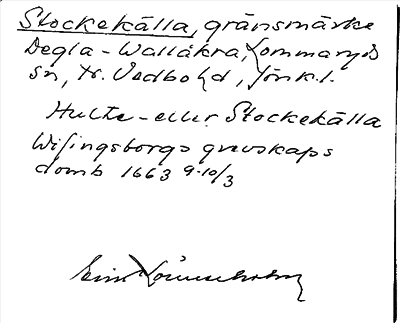 Stockekälla, gränsmärke
Degla-Wallåkra, Lommaryds
sn, N. Vedbo hd, Jönk.l.
Hulte- eller Stockekälla
Wisingsborgs grevskaps
domb 1663 9-10/3